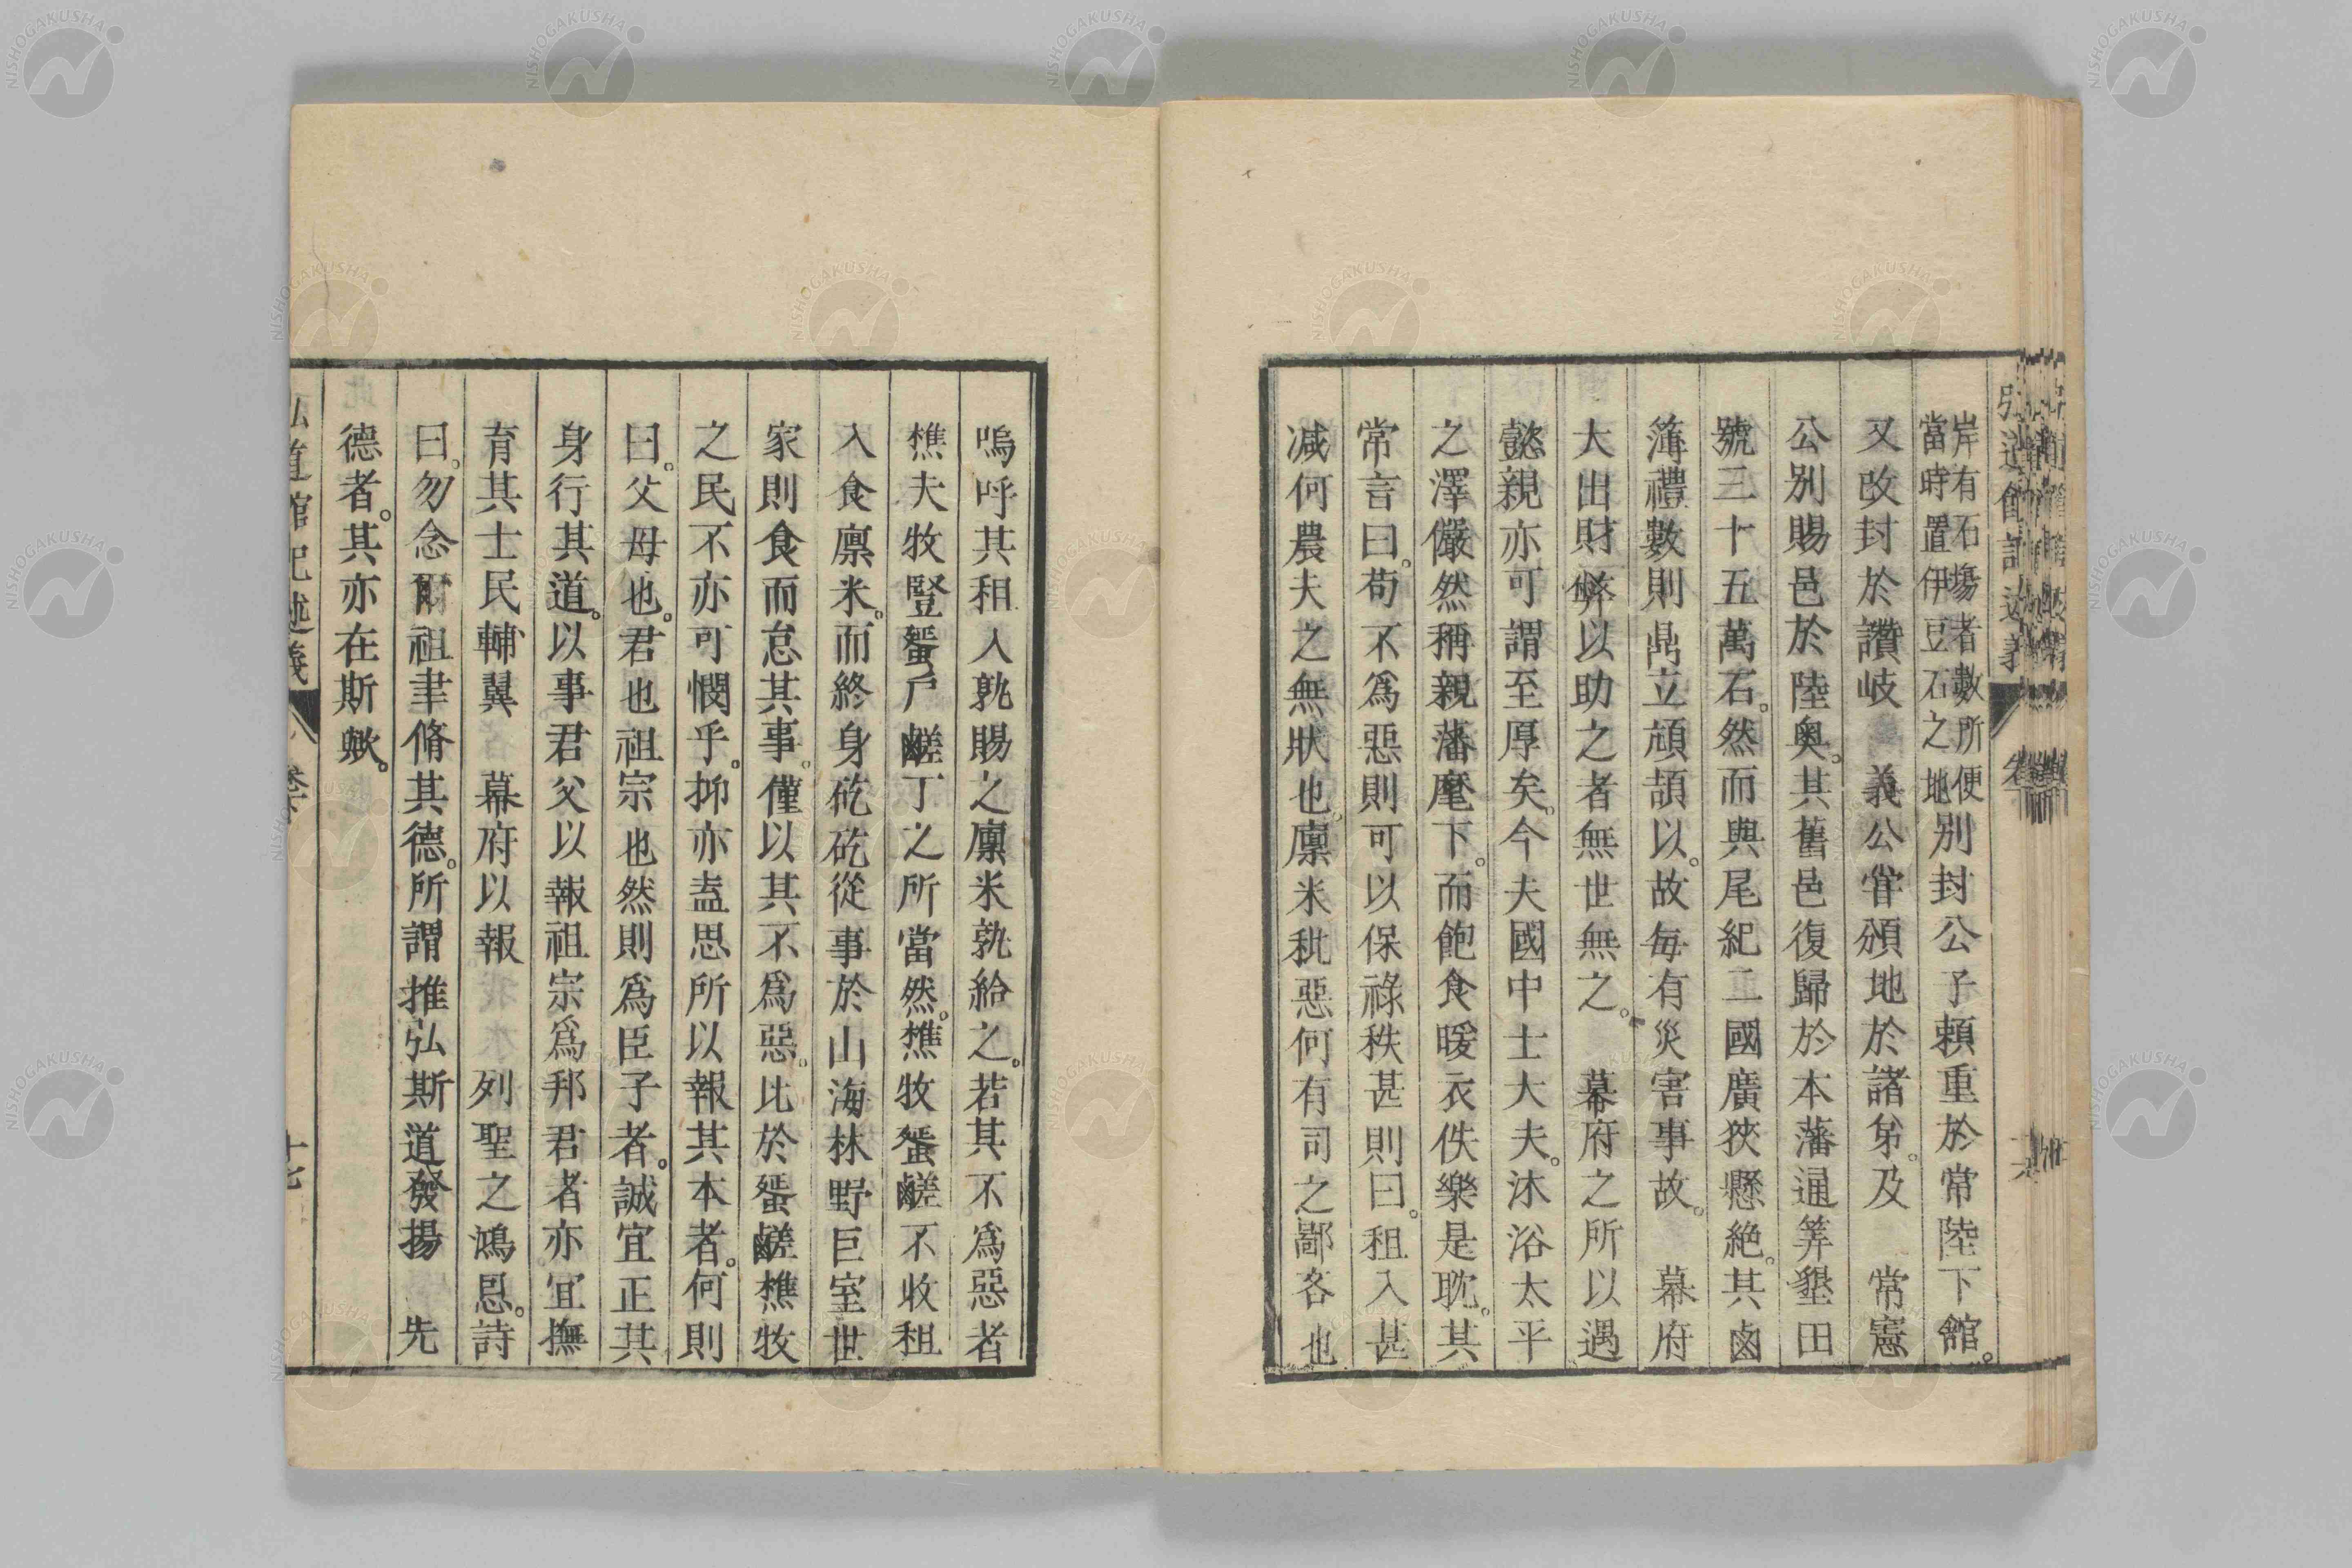 岸有石塲者數所便
當時置伊豆石之地
別封公子賴重於常陸下館。
又改封於讚岐 義公甞頒地於諸弟。及 常憲
公別賜邑於陸奥。其舊邑復歸於本藩通筭墾田
號三十五萬石。然而與尾紀二國廣狹懸絶。其鹵
簿禮數則鼎立頑頡以。故毎有災害事故。 幕府
大出財弊以助之者無世無之。 幕府之所以遇
懿親亦可謂至厚矣。今夫國中士大夫。沐浴太平
之澤儼然稱親藩麾下。而飽食暖衣佚樂是耽。其
常言曰。苟不爲惡則可以保祿秩甚則曰。租入甚
减何農夫之無狀也。廩米粃惡何有司之鄙吝也
嗚呼其租入孰賜之廩米孰給之。若其不爲惡者
樵夫牧豎蜑戸鹺丁之所當然。樵牧蜑鹺不收租
入食廩米。而終身矻矻從事於山海林野巨室世
家則食而怠其事。僅以其不爲惡。比於蜑鹺樵牧
之民不亦可憫乎。抑亦盍思所以報其本者。何則
曰。父母也。君也祖宗也然則爲臣子者。誠宜正其
身行其道。以事君父以報祖宗爲邦君者亦宜撫
育其士民輔翼 幕府以報 列聖之鴻恩。詩
曰。勿念爾祖聿脩其德。所謂推弘斯道發揚 先
德者。其亦在斯歟。
弘道館記述義 卷 十七